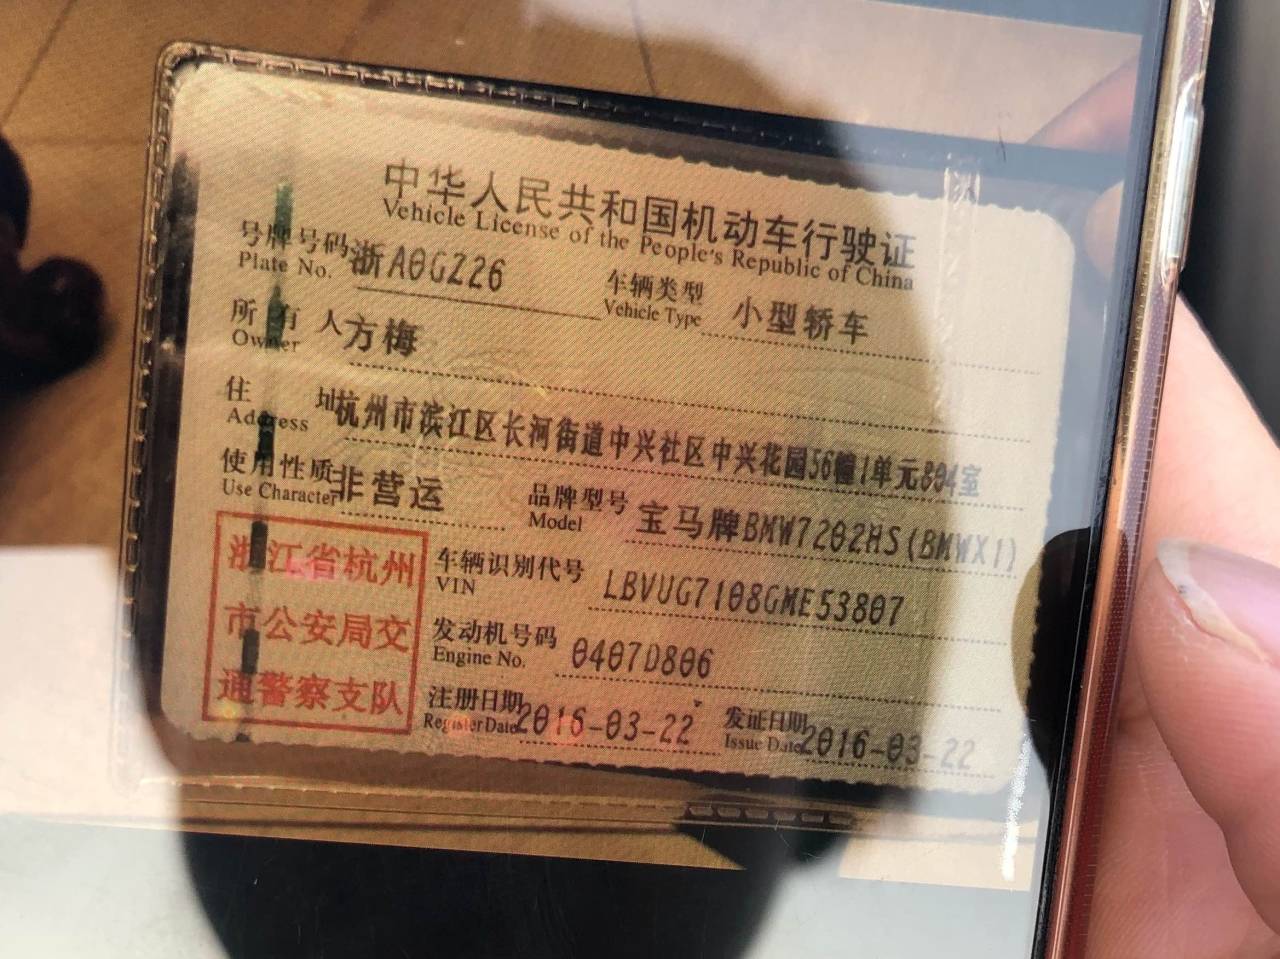 中华人民共和国机动车行驶证
Vehicle License of the People's Republic of China
号牌号码 浙A0GZ26 车辆类型 小型轿车
Plate No. Vehicle Type
所有人 方梅
Owner
住址 杭州市滨江区长河街道中兴社区中兴花园56幢1单元804室
Address
使用性质 非营运 品牌型号 宝马牌BMW7202HS(BMWX1)
Use Character Model
浙江省杭州
市公安局交
通警察支队
车辆识别代号 LBVUG7108GME53807
VIN
发动机号码 0407D806
Engine No.
注册日期 2016-03-22 发证日期 2016-03-22
Register Date Issue Date